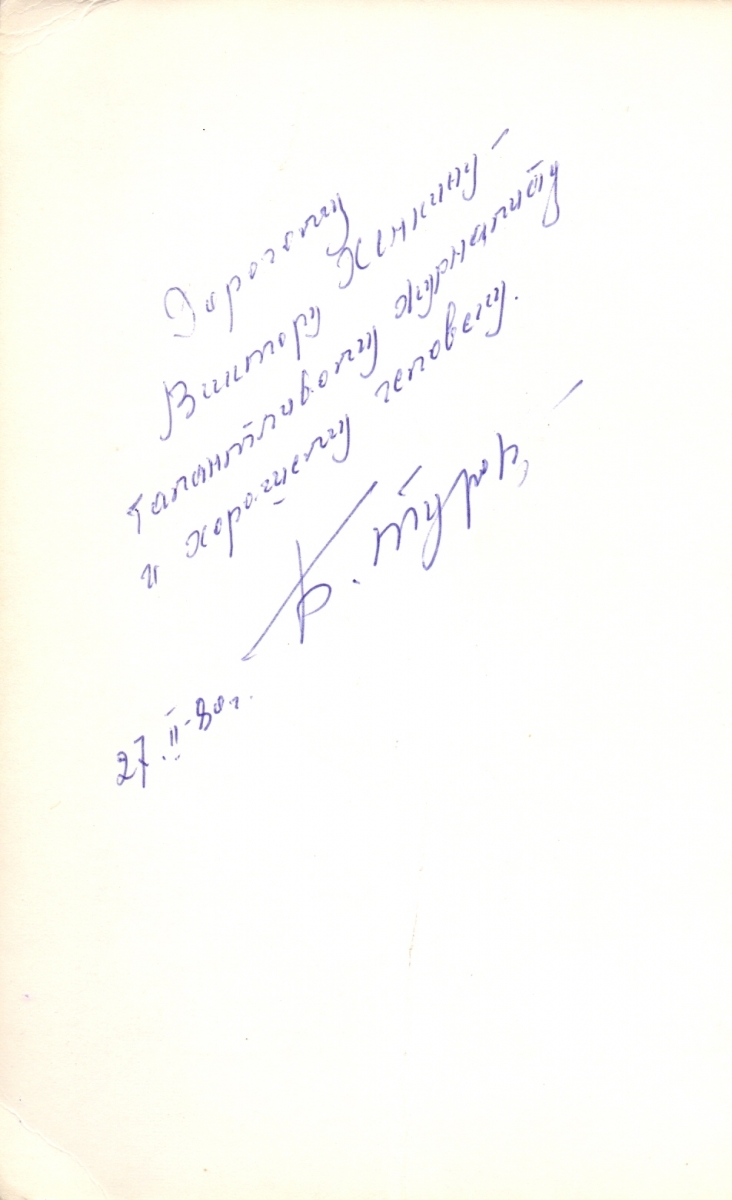 Дорогому
Виктору Хенкину –
талантливому журналисту
и хорошему человеку.
В. Туров,
27.II-80г.